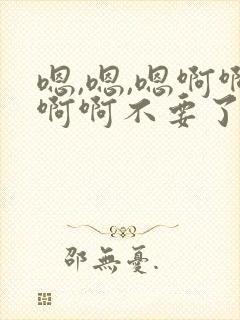 嗯,嗯,嗯啊啊
啊啊不要了
邵無憂.